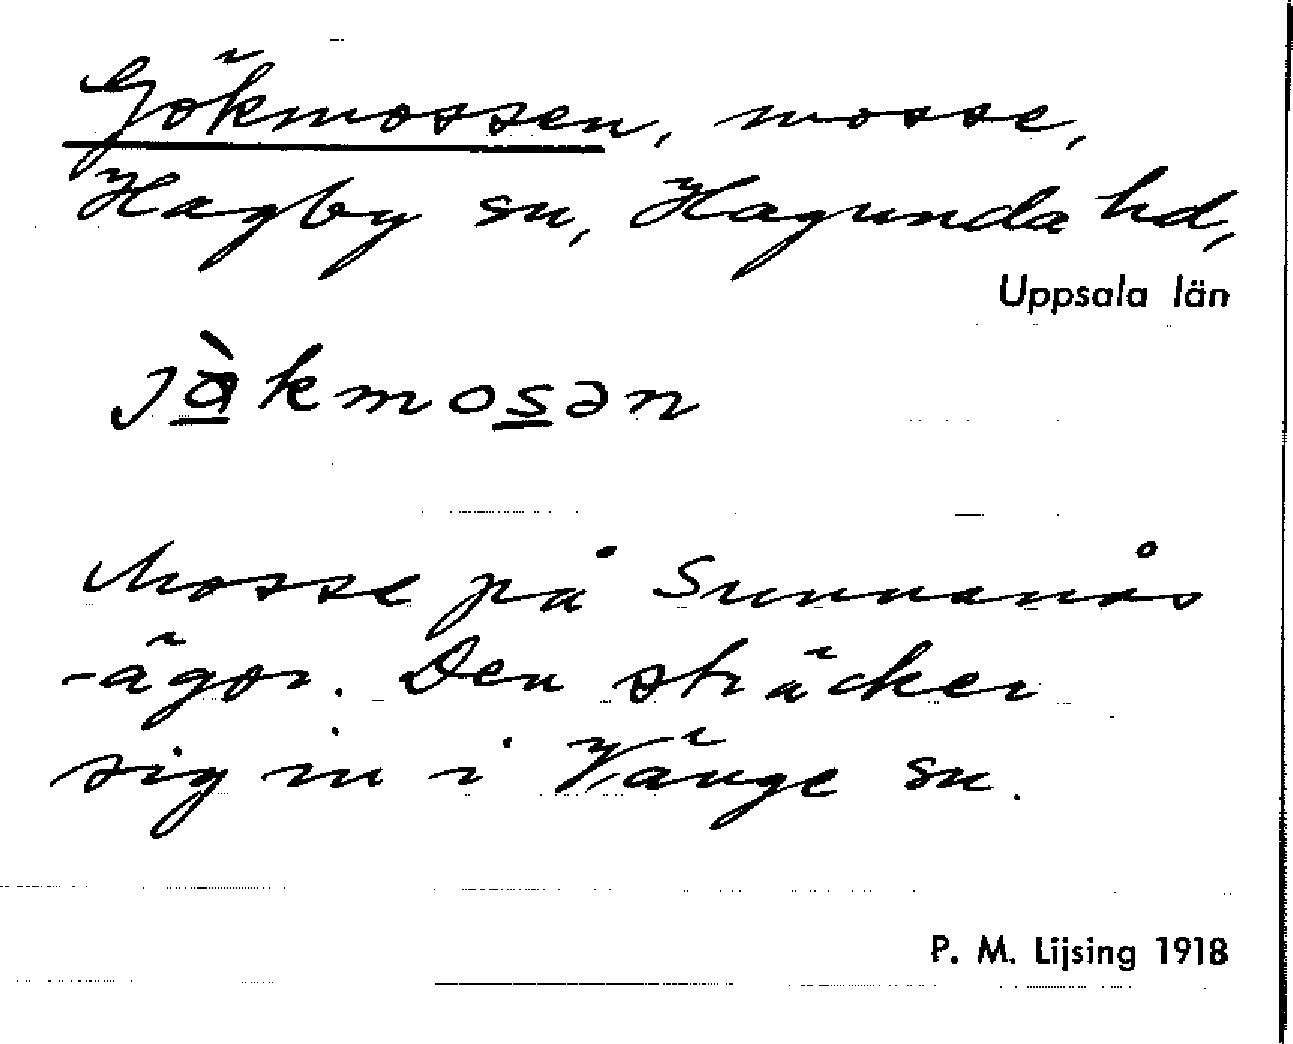 Gökmossen, mosse,
Hagby sn, Hagunda hd,
Uppsala län
jɑ̀kmosən
Mosse på Sunnanås
-ägor. Den sträcker
sig in i Vänge sn.
P. M. Lijsing 1918